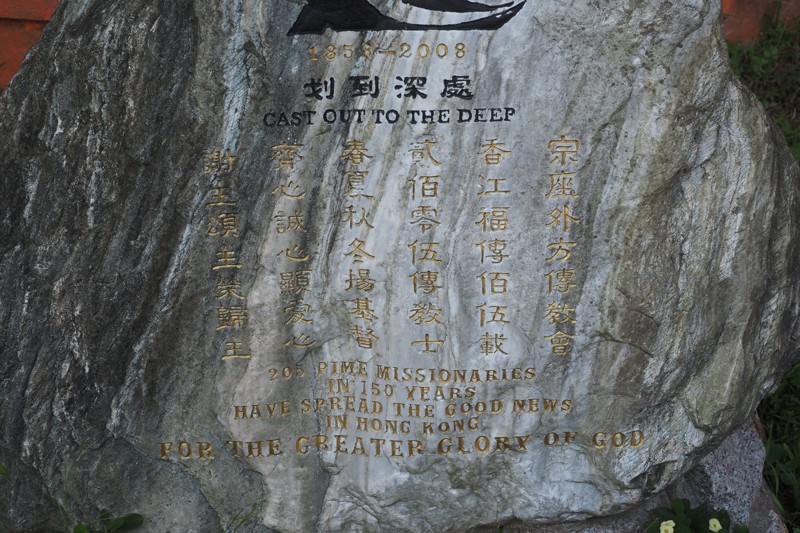 1858-2008
划到深處
CAST OUT TO THE DEEP
宗座外方傳教會
香江福傳佰伍載
貳佰零伍傳教士
春夏秋冬揚基督
齊心誠心顯愛心
謝主頌主榮歸主
205 PIME MISSIONARIES
IN 150 YEARS
HAVE SPREAD THE GOOD NEWS
IN HONG KONG
FOR THE GREATER GLORY OF GOD